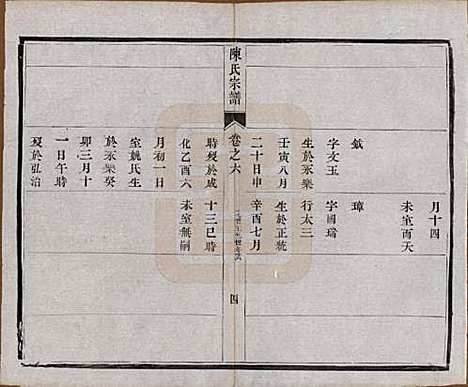 月十四
未室而夭
鉞
字文玉
生於永樂
壬寅八月
二十日申
時殁於成
化乙酉六
月初一日
室姚氏生
於永樂癸
卯三月十
一日午時
殁於弘治
璋
字國瑞
行太三
生於正統
辛酉七月
十三巳時
未室無嗣
陳氏宗譜
卷之六
四